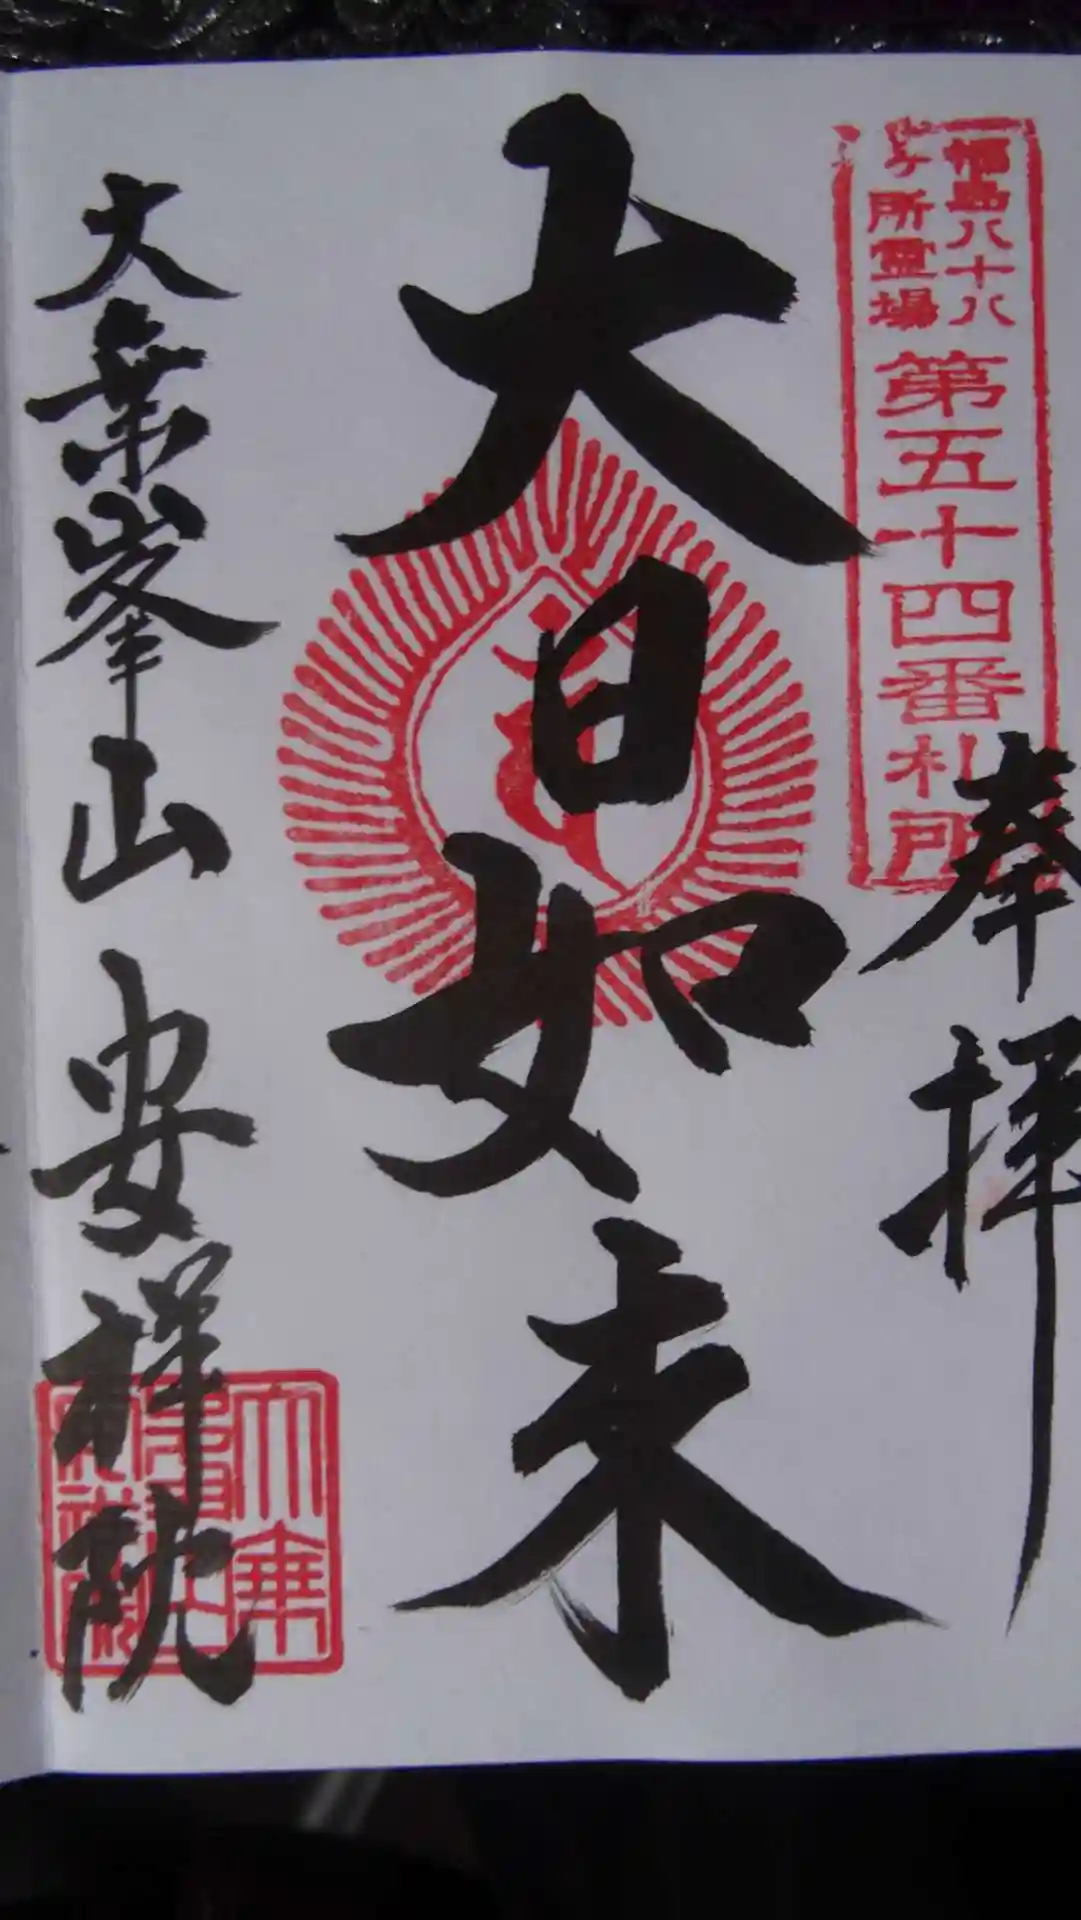 福島八十八
ヶ所霊場
第五十四番札所
奉拝
大日如来
大乗峯山
安祥院